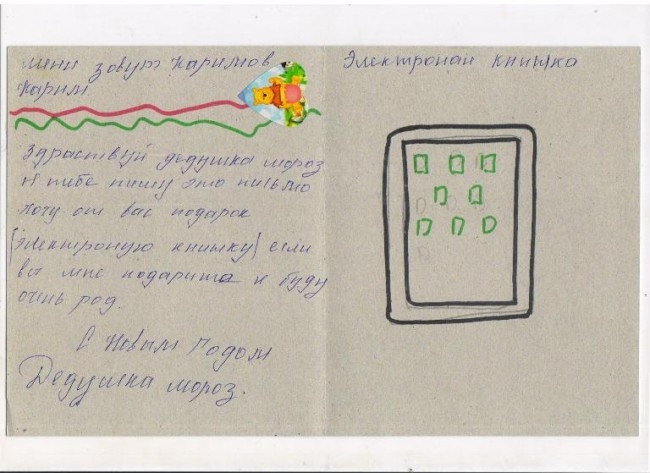 меня зовут Каримов
Карим.
Здраствуй дедушка мороз
я тибе пишу это письмо
хочу от вас подарок
(электроную книжку) если
вы мне подарите я буду
очень рад.
С Новым Годом
Дедушка мороз.
Электроная книжка